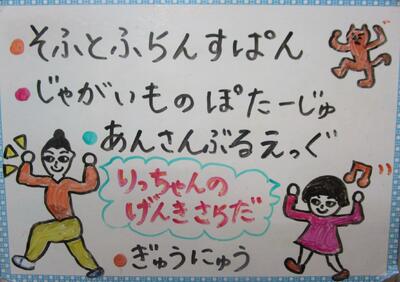 そふとふらんすぱん
じゃがいものぽたーじゅ
あんさんぶるえっぐ
りっちゃんの
げんきさらだ
ぎゅうにゅう